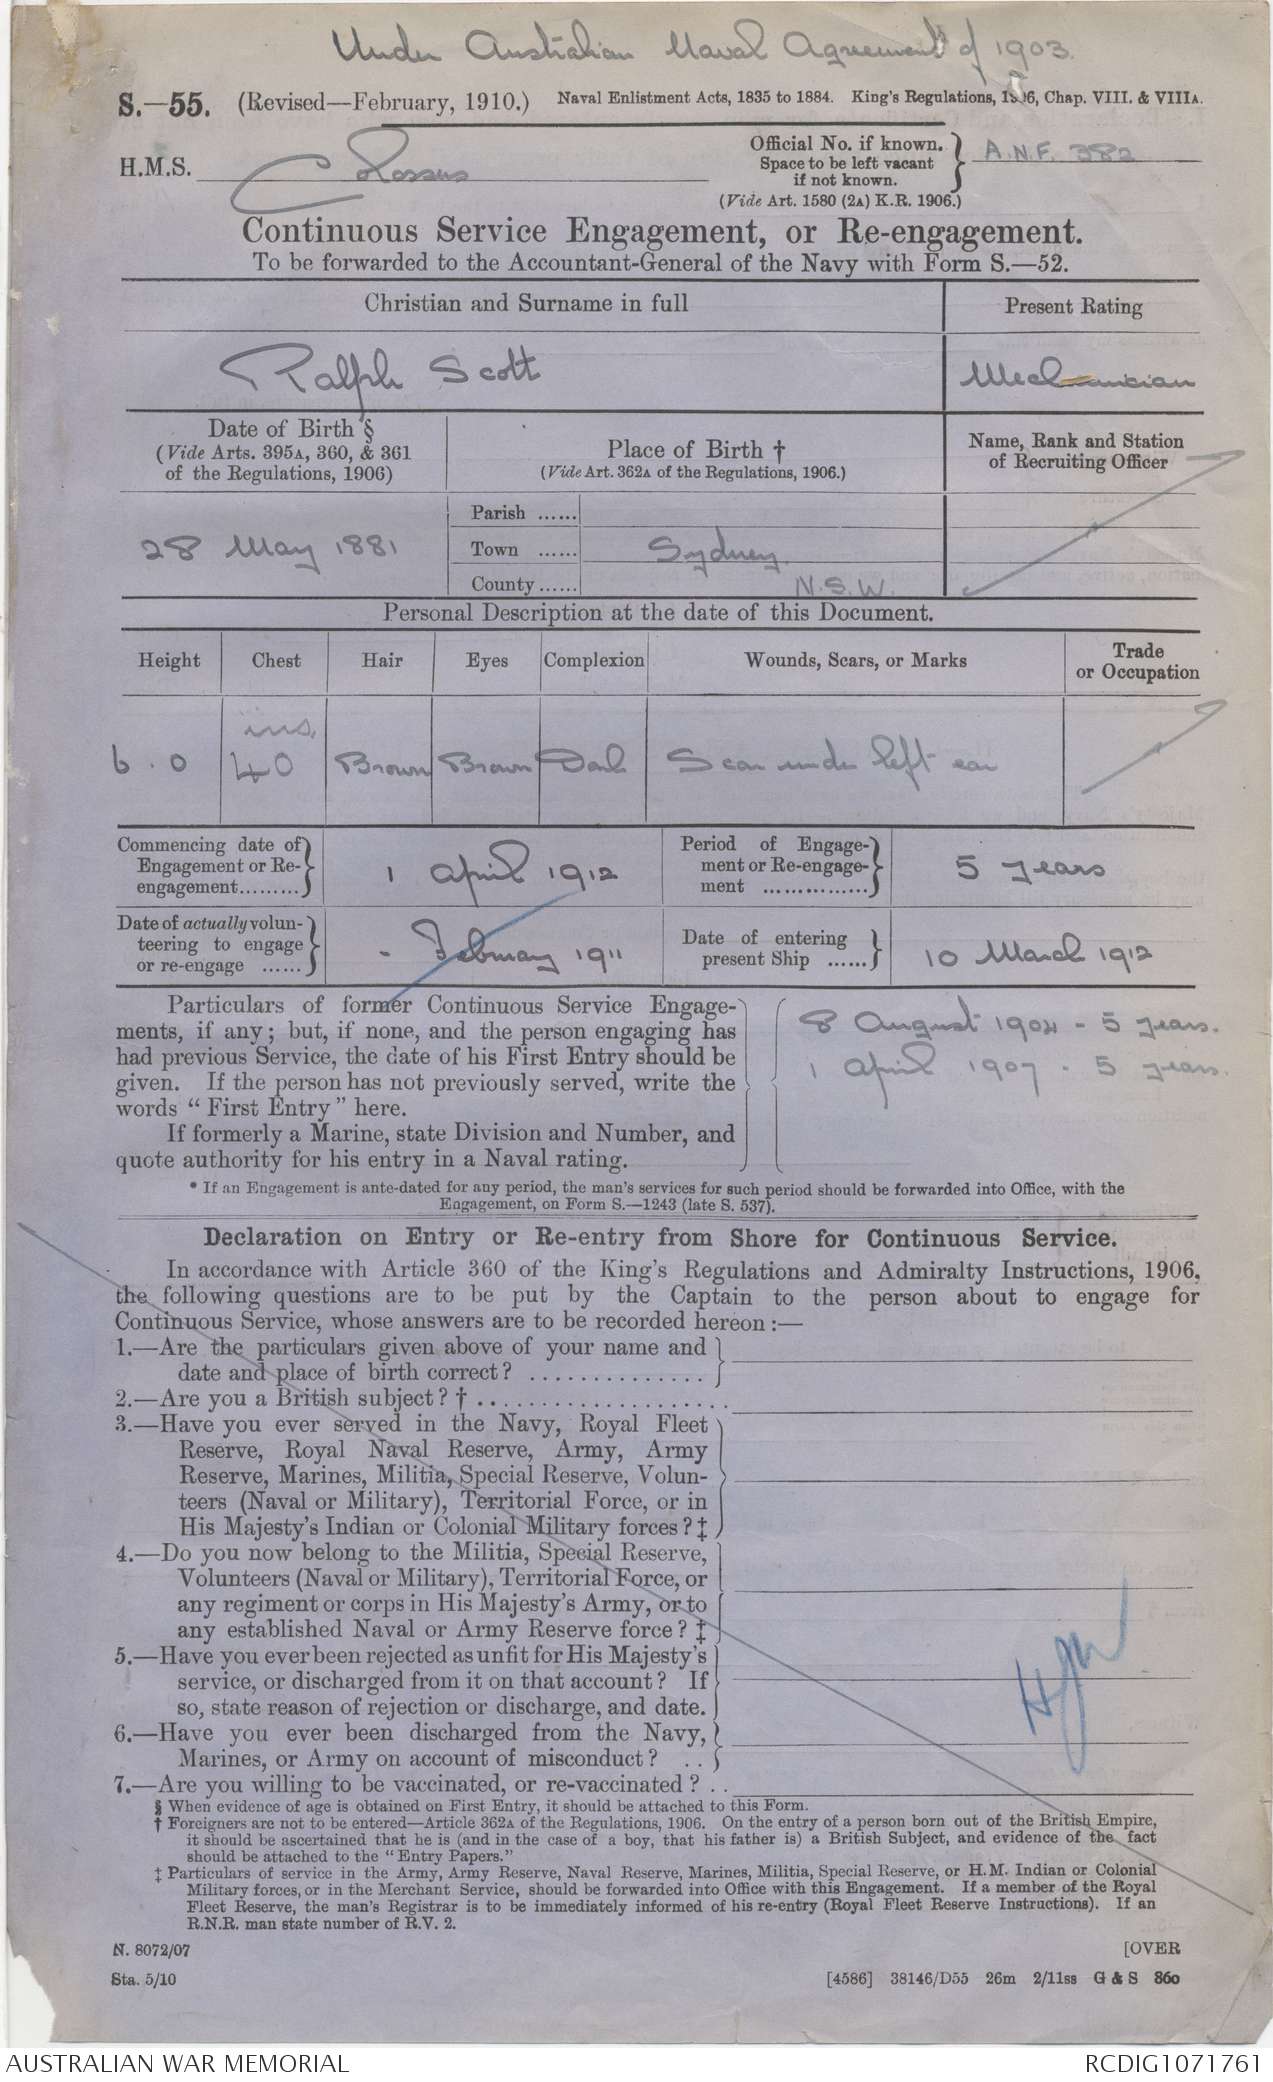 Under Australian Naval Agreement of 1903.
S.—55. (Revised—February, 1910.) Naval Enlistment Acts, 1835 to 1884. King's Regulations, 1906, Chap. VIII. & VIIIA.
H.M.S. Colossus
Official No. if known. Space to be left vacant if not known. A.N.F. 382
(Vide Art. 1580 (2A) K.R. 1906.)
Continuous Service Engagement, or Re-engagement.
To be forwarded to the Accountant-General of the Navy with Form S.—52.
Christian and Surname in full
Present Rating
Ralph Scott
Mechanician
Date of Birth §
(Vide Arts. 395A, 360, & 361
of the Regulations, 1906)
Place of Birth †
(Vide Art. 362A of the Regulations, 1906.)
Name, Rank and Station
of Recruiting Officer
28 May 1881
Parish ......
Town ...... Sydney.
County ...... N.S.W.
Personal Description at the date of this Document.
Height Chest Hair Eyes Complexion Wounds, Scars, or Marks Trade or Occupation
ins.
6.0 40 Brown Brown Dark Scar under left ear
Commencing date of
Engagement or Re-
engagement.........
1 April 1912
Period of Engage-
ment or Re-engage-
ment ...............
5 years
Date of actually volun-
teering to engage
or re-engage ......
- February 1911
Date of entering
present Ship ......
10 March 1912
Particulars of former Continuous Service Engage-
ments, if any; but, if none, and the person engaging has
had previous Service, the date of his First Entry should be
given. If the person has not previously served, write the
words "First Entry" here.
If formerly a Marine, state Division and Number, and
quote authority for his entry in a Naval rating.
8 August 1904 - 5 years.
1 April 1907 - 5 years.
* If an Engagement is ante-dated for any period, the man's services for such period should be forwarded into Office, with the
Engagement, on Form S.—1243 (late S. 537).
Declaration on Entry or Re-entry from Shore for Continuous Service.
In accordance with Article 360 of the King's Regulations and Admiralty Instructions, 1906,
the following questions are to be put by the Captain to the person about to engage for
Continuous Service, whose answers are to be recorded hereon :—
1.—Are the particulars given above of your name and
date and place of birth correct? ..............
2.—Are you a British subject? † ....................
3.—Have you ever served in the Navy, Royal Fleet
Reserve, Royal Naval Reserve, Army, Army
Reserve, Marines, Militia, Special Reserve, Volun-
teers (Naval or Military), Territorial Force, or in
His Majesty's Indian or Colonial Military forces? ‡
4.—Do you now belong to the Militia, Special Reserve,
Volunteers (Naval or Military), Territorial Force, or
any regiment or corps in His Majesty's Army, or to
any established Naval or Army Reserve force? ‡
5.—Have you ever been rejected as unfit for His Majesty's
service, or discharged from it on that account? If
so, state reason of rejection or discharge, and date.
6.—Have you ever been discharged from the Navy,
Marines, or Army on account of misconduct? ..
7.—Are you willing to be vaccinated, or re-vaccinated? ..
§ When evidence of age is obtained on First Entry, it should be attached to this Form.
† Foreigners are not to be entered—Article 362A of the Regulations, 1906. On the entry of a person born out of the British Empire,
it should be ascertained that he is (and in the case of a boy, that his father is) a British Subject, and evidence of the fact
should be attached to the "Entry Papers."
‡ Particulars of service in the Army, Army Reserve, Naval Reserve, Marines, Militia, Special Reserve, or H.M. Indian or Colonial
Military forces, or in the Merchant Service, should be forwarded into Office with this Engagement. If a member of the Royal
Fleet Reserve, the man's Registrar is to be immediately informed of his re-entry (Royal Fleet Reserve Instructions). If an
R.N.R. man state number of R.V. 2.
N. 8072/07
[OVER
Sta. 5/10
[4586] 38146/D55 26m 2/11ss G & S 860
AUSTRALIAN WAR MEMORIAL
RCDIG1071761